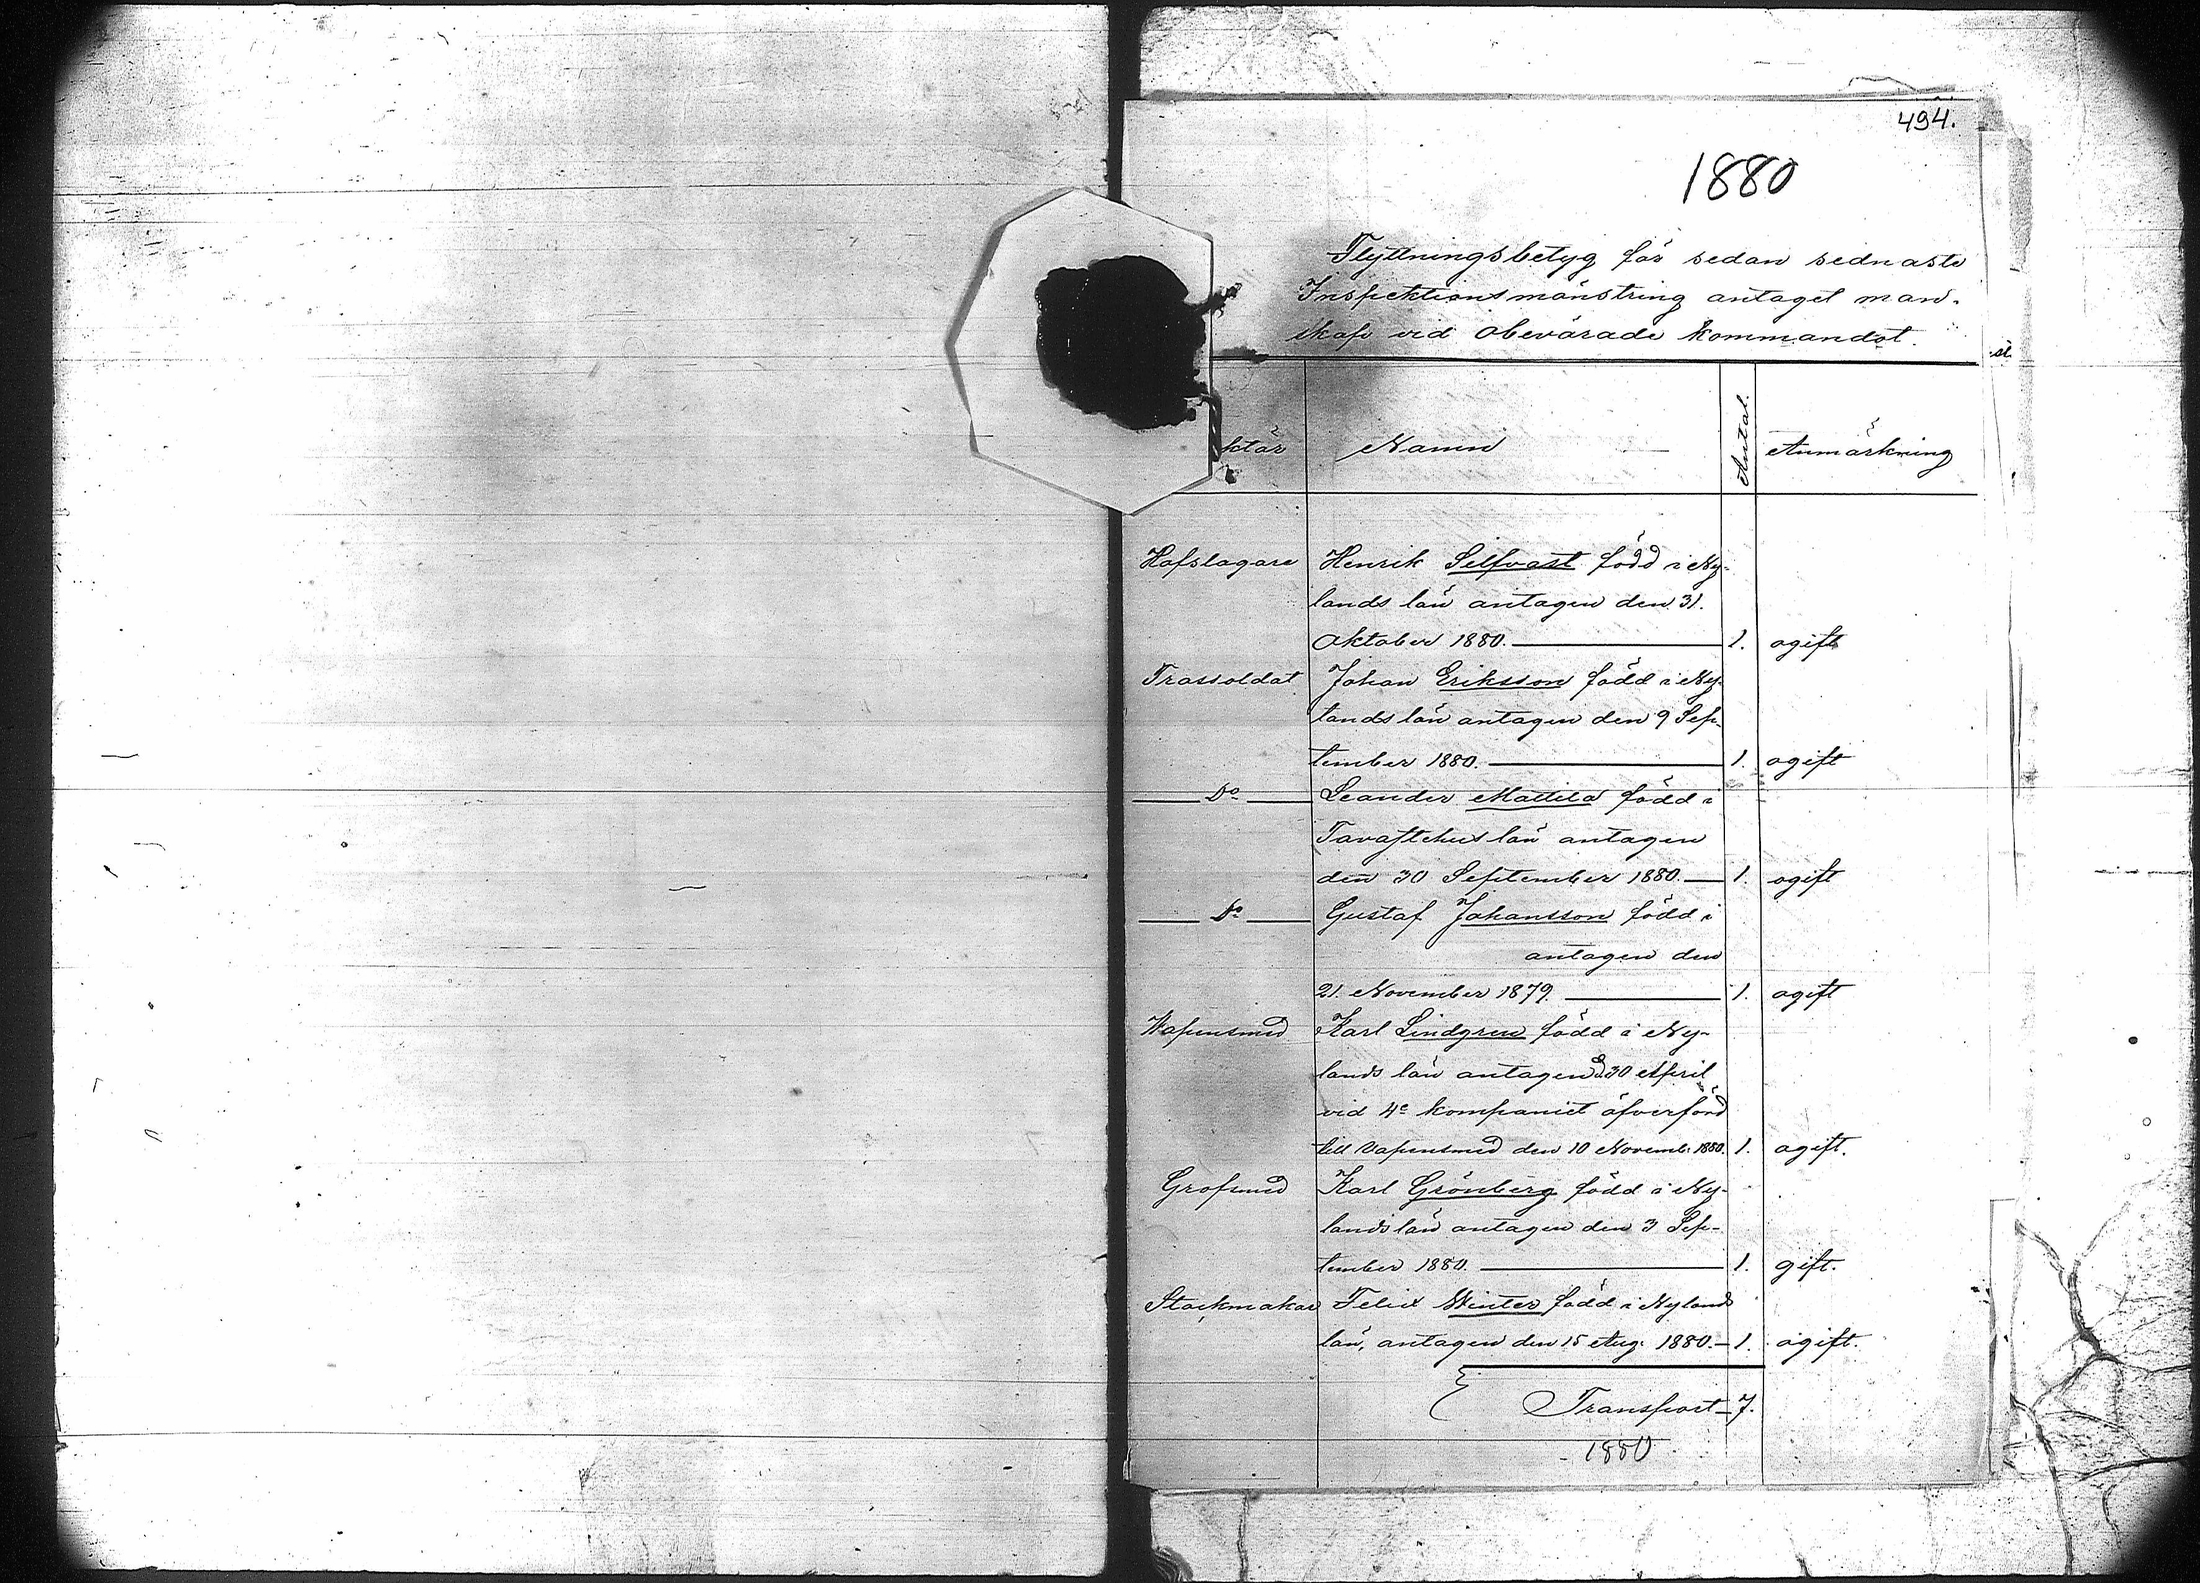 494.
1880
Flyttningsbetyg för sedan sednaste
Inspektionsmönstring antaget man-
skap vid obevärade kommandot.
st.
ktär Namn Antal. Anmärkning
Hofslagare Henrik Silfvast född i Ny-
lands län antagen den 31.
Oktober 1880. 1. ogift
Trassoldat Johan Eriksson född i Ny-
lands län antagen den 9 Sep-
tember 1880. 1. ogift
Do Leander Mattila född i
Tavastehus län antagen
den 30 September 1880. 1. ogift
Do Gustaf Johansson född i
antagen den
21. November 1879. 1. ogift
Vapensmed Karl Lindgren född i Ny-
lands län antagen d. 30 April
vid 4e kompaniet öfverförd
till Vapensmed den 10 Novemb. 1880. 1. ogift.
Grofsmed Karl Grönberg född i Ny-
lands län antagen den 3 Sep-
tember 1880. 1. gift.
Stockmakar Felix Winter född i Nylands
län, antagen den 15 Aug. 1880. 1. ogift.
Transport 7.
1880